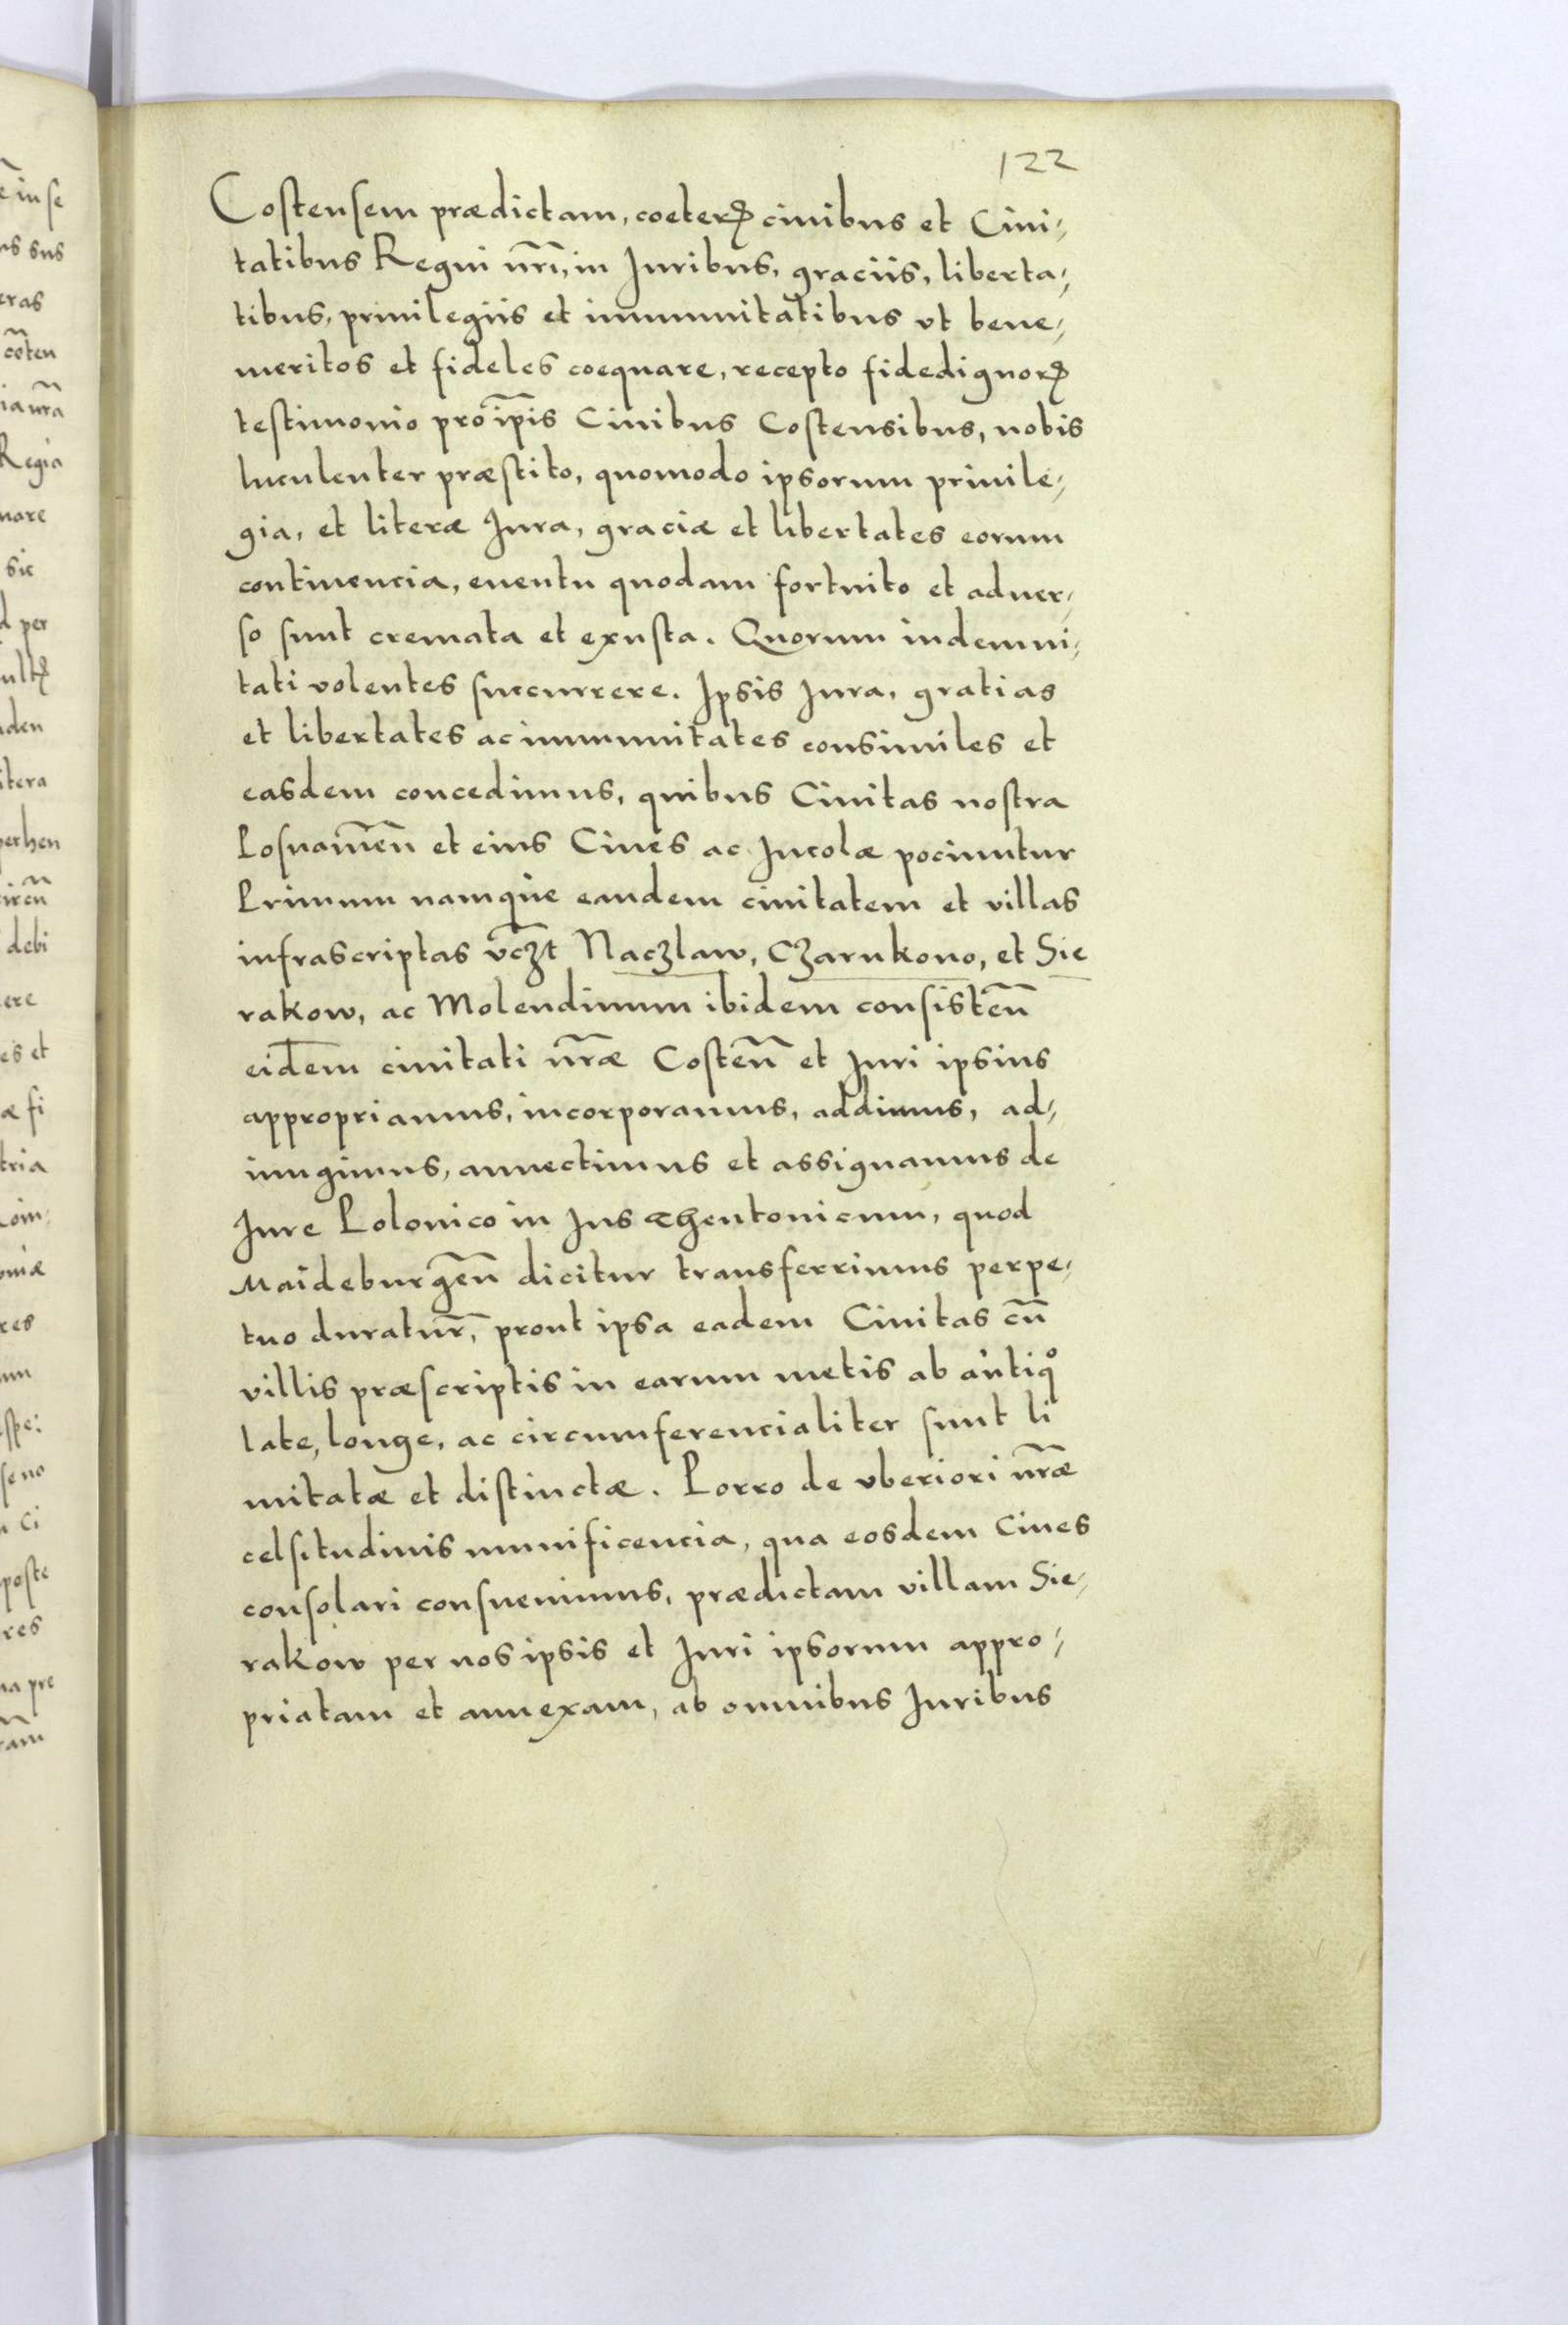 122
Costensem prædictam, coeterꝝ ciuibus et Ciui⸗
tatibus Regni nr̃i, in Juribus, graciis, liberta⸗
tibus, priuilegiis et immunitatibus vt bene⸗
meritos et fideles coequare, recepto fidedignorꝝ
testimonio pro ip̃is Ciuibus Costensibus, nobis
luculenter præstito, quomodo ipsorum priuile⸗
gia, et literæ Jura, graciæ et libertates eorum
continencia, euentu quodam fortuito et aduer⸗
so sunt cremata et exusta. Quorum indemni⸗
tati volentes succurrere. Ipsis Jura, gratias
et libertates ac immunitates consimiles et
easdem concedimus, quibus Ciuitas nostra
Posnanieñ et eius Ciues ac Incolæ pociuntur
Primum namque eandem ciuitatem et villas
infrascriptas vc̃zt Naczlaw, Czarnkouo, et Sie
rakow, ac Molendinum ibidem consisteñ
eidem ciuitati nr̃æ Costeñ et Juri ipsius
appropriamus, incorporamus, addimus, ad⸗
iungimus, annectimus et assignamus de
Jure Polonico in Jus Theutonicum, quod
Maideburgeñ dicitur transferrimus perpe⸗
tuo duratur̃, prout ipsa eadem Ciuitas cũ
villis præscriptis in earum metis ab antiqͦ
late, longe, ac circumferencialiter sunt li
mitatæ et distinctæ. Porro de vberiori nr̃æ
celsitudinis munificencia, qua eosdem Ciues
consolari consueuimus, prædictam villam Sie⸗
rakow per nos ipsis et Juri ipsorum appro⸗
priatam et annexam, ab omnibus Juribus
e in se
ns sus
eras
cõten
ia nr̃a
Regia
nare
sic
d per
ultꝝ
den
itera
perhen
debi
ere
es et
æ fi
tria
oniæ
res
um
se no
Ci
poste
res
na pre